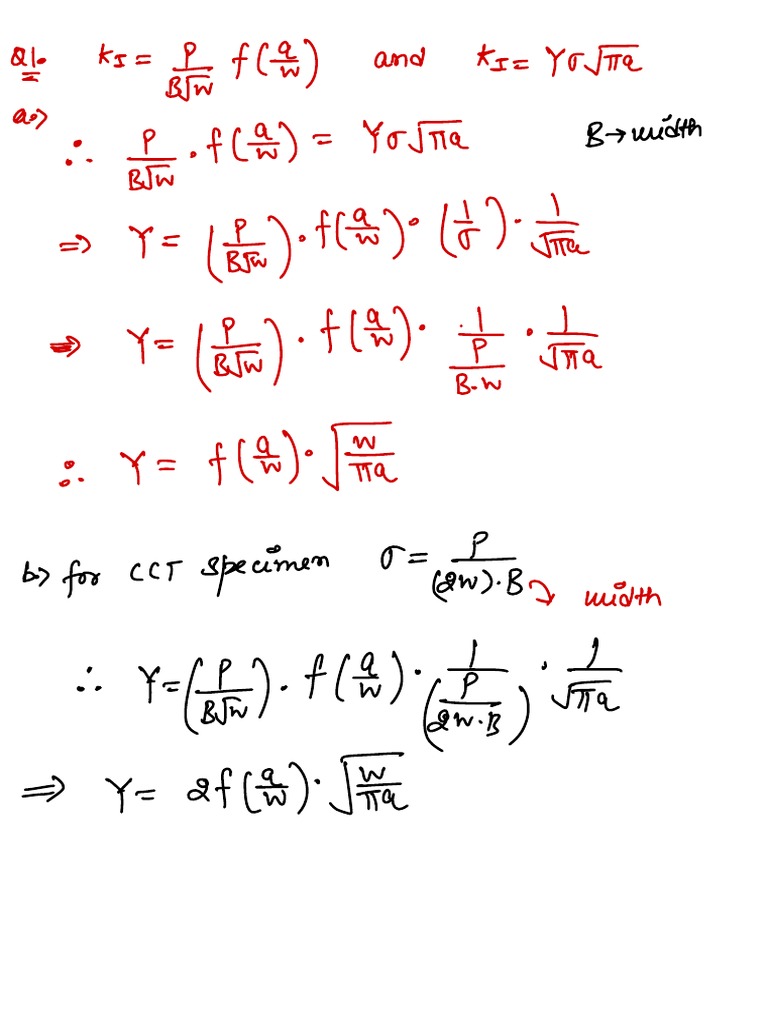 Q1. K_I = P/(B√w) f(a/w) and K_I = Yσ√(πa)
a.)
∴ P/(B√w) · f(a/w) = Yσ√(πa) B → width
⇒ Y = (P/(B√w)) · f(a/w) · (1/σ) · 1/√(πa)
⇒ Y = (P/(B√w)) · f(a/w) · 1/(P/(B·w)) · 1/√(πa)
∴ Y = f(a/w) · √(w/(πa))
b.) for CCT specimen σ = P/((2w)·B) → width
∴ Y = (P/(B√w)) · f(a/w) · 1/(P/(2w·B)) · 1/√(πa)
⇒ Y = 2f(a/w) · √(w/(πa))